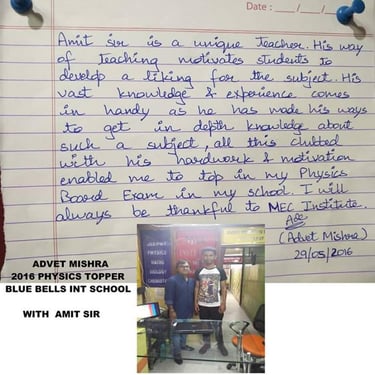 Date : ___/___/___
Amit sir is a unique teacher. His way
of teaching motivates students to
develop a liking for the subject. His
vast knowledge & experience comes
in handy as he has made his ways
to get in depth knowledge about
such a subject, all this clubbed
with his hardwork & motivation
enabled me to top in my Physics
Board Exam in my school. I will
always be thankful to MEC Institute.
(Advet Mishra)
29/05/2016
ADVET MISHRA
2016 PHYSICS TOPPER
BLUE BELLS INT SCHOOL
WITH AMIT SIR
PHYSICS
MATHS
BIOLOGY
CHEMISTRY